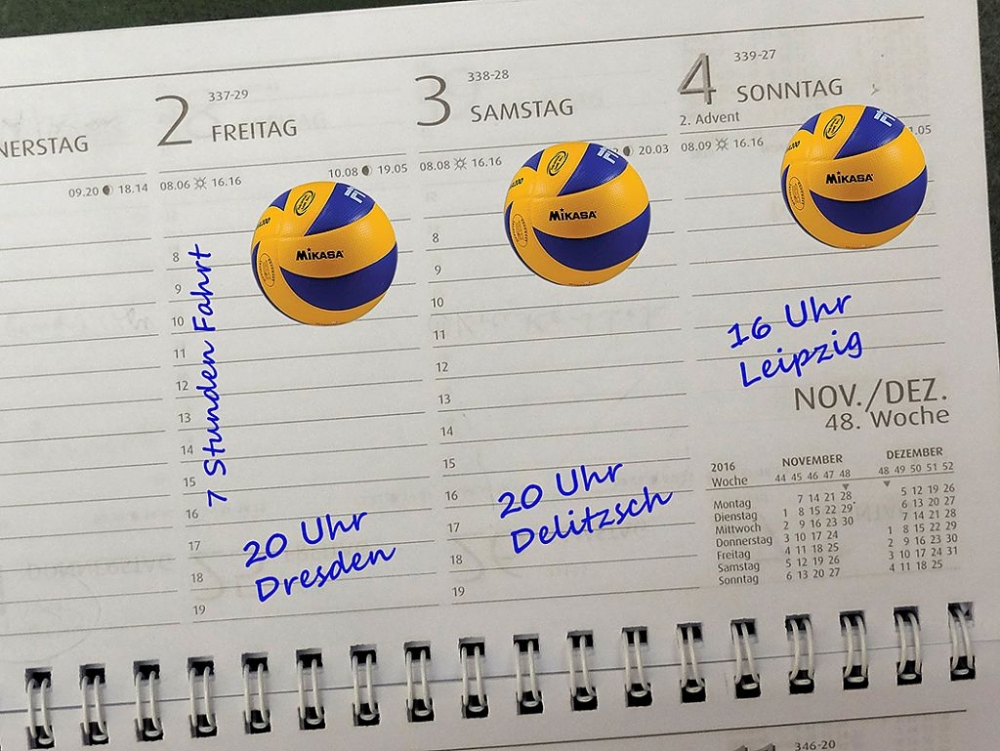 NERSTAG
09.20 18.14
2
337-29
FREITAG
08.06 16.16
10.08 19.05
MIKASA
8
9
10
11
12
13
14
15
16
17
18
19
7 Stunden Fahrt
20 Uhr
Dresden
3
338-28
SAMSTAG
08.08 16.16
20.03
MIKASA
8
9
10
11
12
13
14
15
16
17
18
19
20 Uhr
Delitzsch
4
339-27
SONNTAG
2. Advent
08.09 16.16
1.05
MIKASA
16 Uhr
Leipzig
NOV./DEZ.
48. Woche
2016 NOVEMBER DEZEMBER
Woche 44 45 46 47 48 48 49 50 51 52
Montag 7 14 21 28 5 12 19 26
Dienstag 1 8 15 22 29 6 13 20 27
Mittwoch 2 9 16 23 30 7 14 21 28
Donnerstag 3 10 17 24 1 8 15 22 29
Freitag 4 11 18 25 2 9 16 23 30
Samstag 5 12 19 26 3 10 17 24 31
Sonntag 6 13 20 27 4 11 18 25
346-20